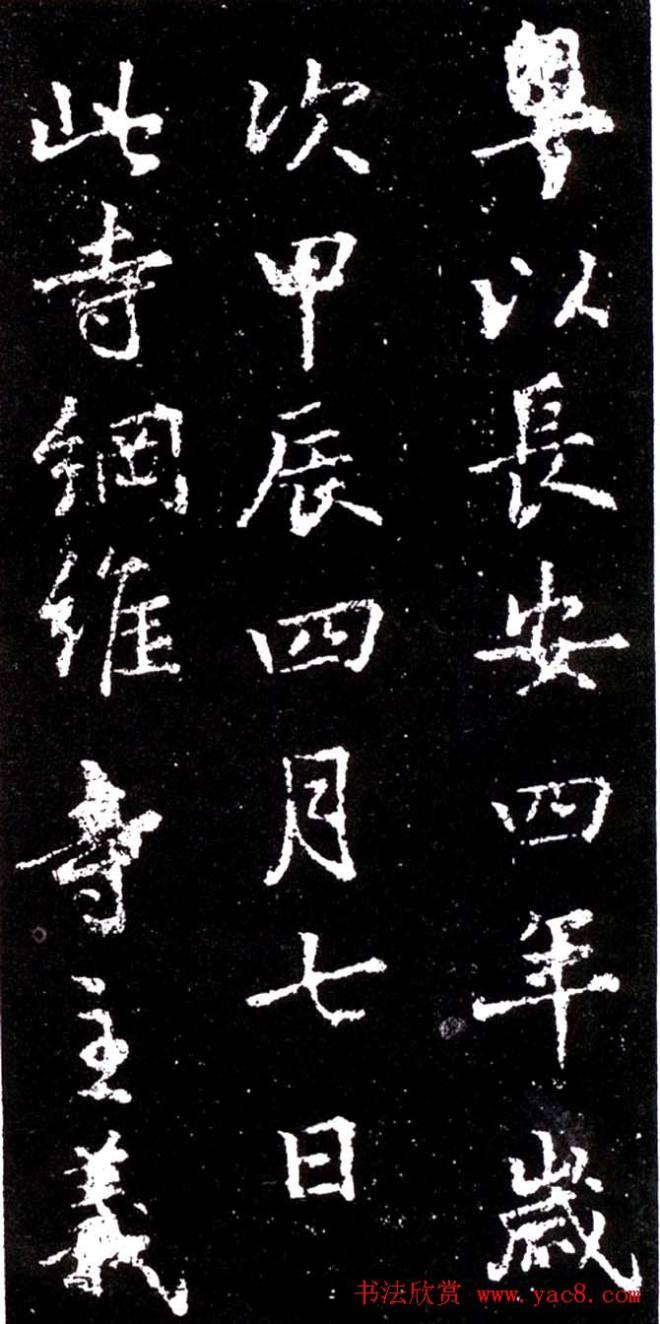 粤以長安四年歲
次甲辰四月七日
此寺綱維寺主義
书法欣赏 www.yac8.com